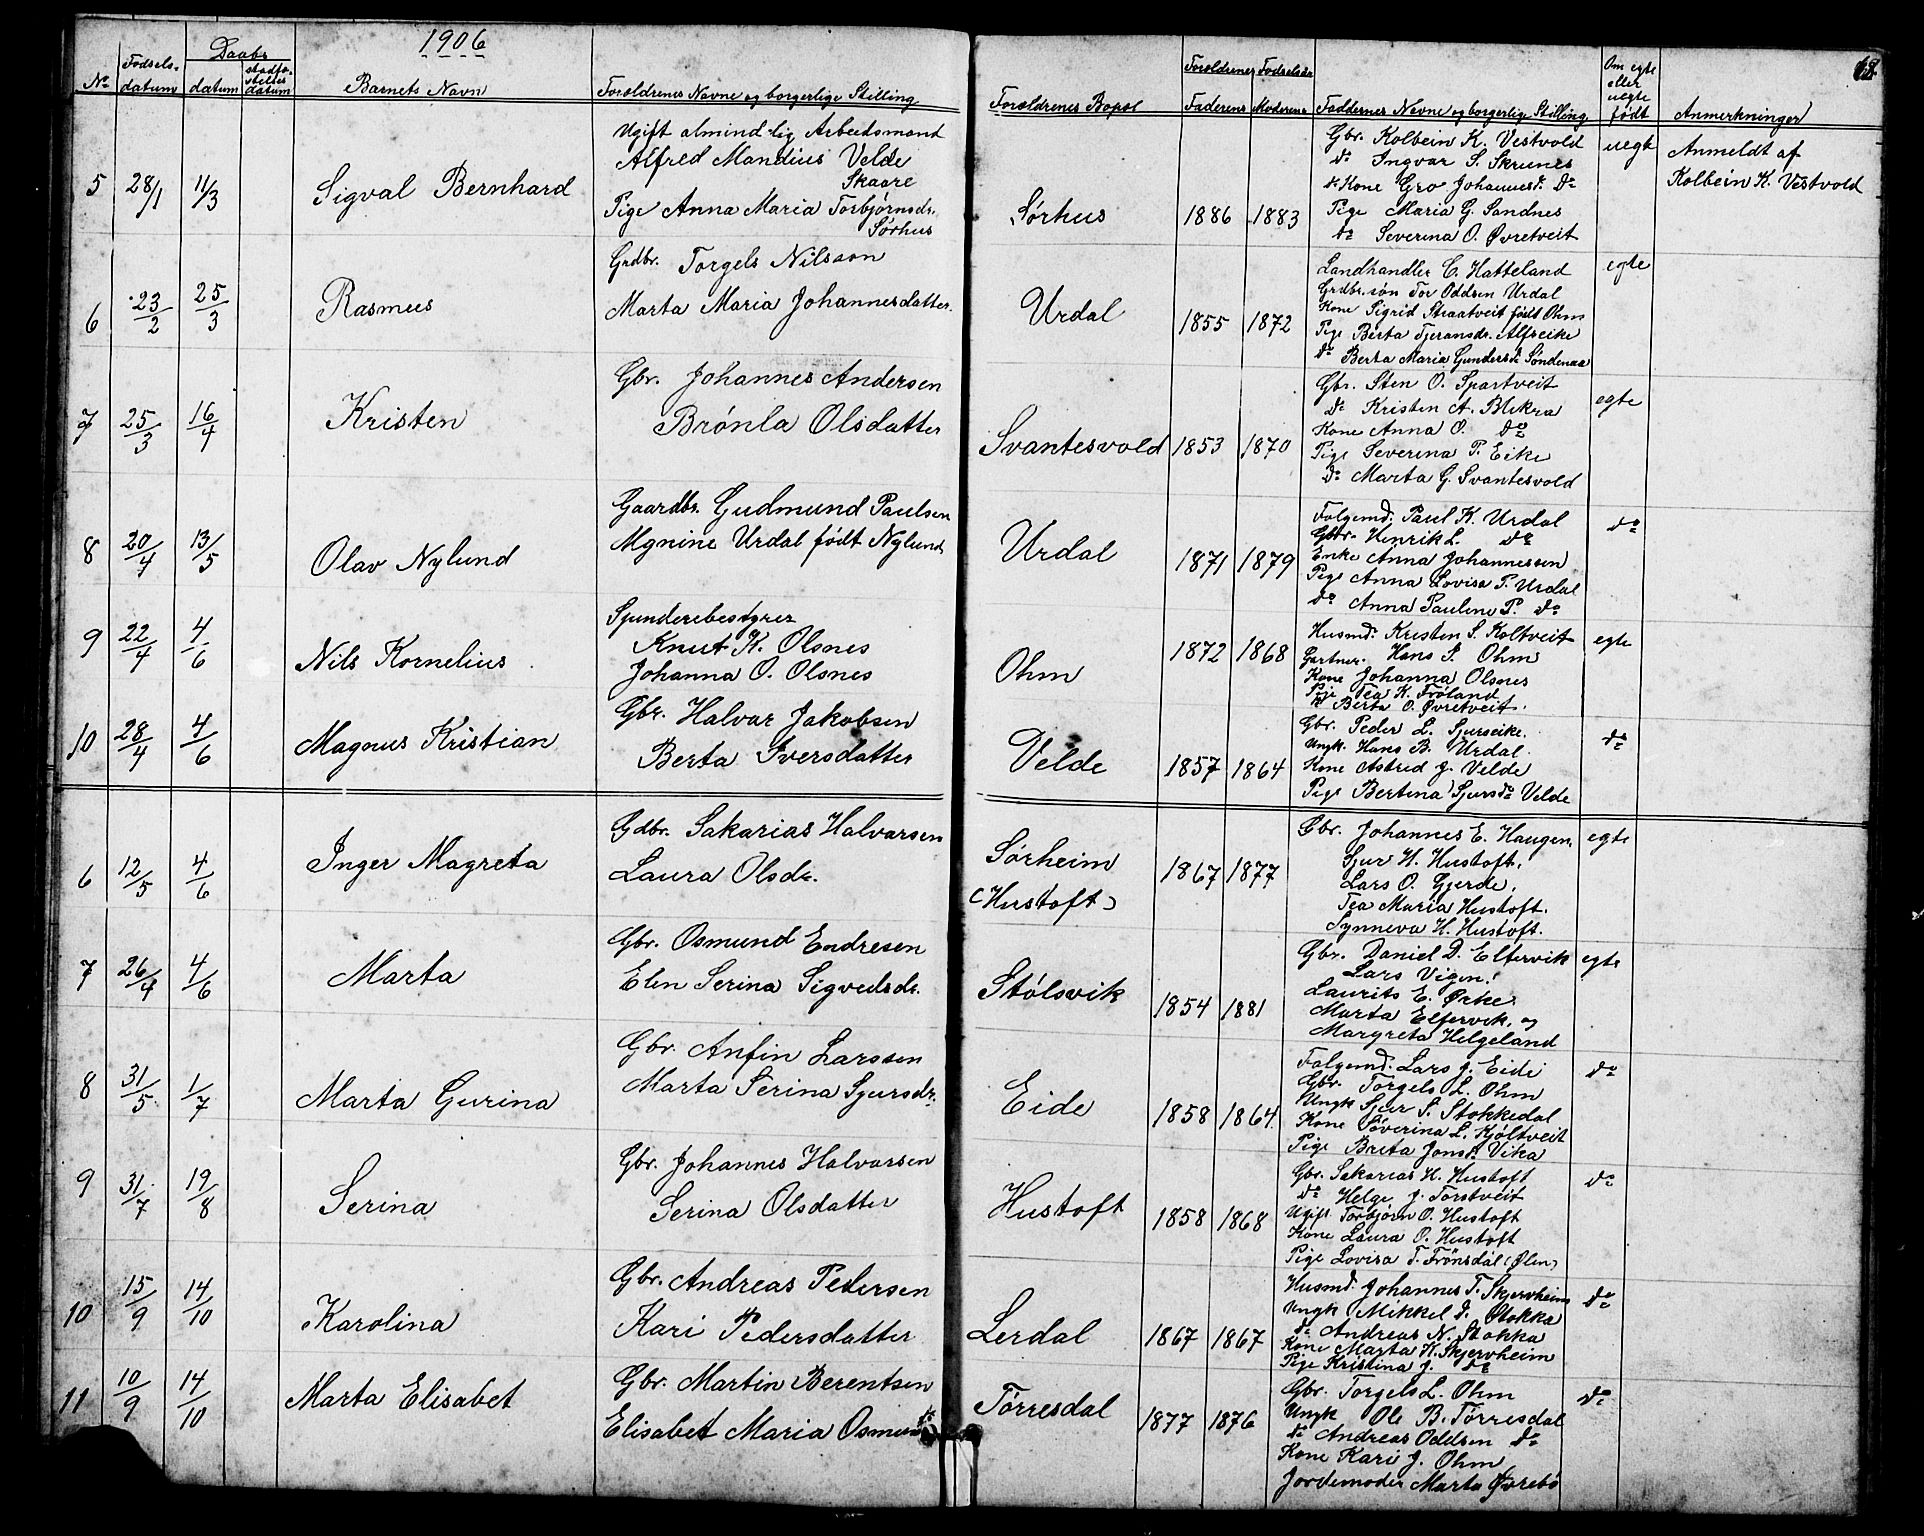 1906
No
Fødsels-
datum
Daabs
datum
stadfæ-
stelses
datum
Barnets Navn
Forældrenes Navne og borgerlige Stilling
Forældrenes Bopæl
Forældrenes Fødselsår
Faderens
Moderens
Faddernes Navne og borgerlige Stilling
Om egte
eller
uegte
født
Anmerkninger
5 28/1 11/3 Sigval Bernhard
Ugift almindelig Arbeidsmand
Alfred Mandius Velde
Skaare
Pige Anna Maria Torbjørnsdr.
Sørhus
Sørhus 1886 1883
Gbr. Kolbein K. Vestvold
do Ingvar S. Skrunes
Kone Gro Johannesd. do
Pige Maria G. Sandnes
do Severina O. Øvretveit
uegte
Anmeldt af
Kolbein K. Vestvold
6 23/2 25/3 Rasmus
Grdbr. Torgels Nilsson
Marta Maria Johannesdatter
Urdal 1855 1872
Landhandler C. Hatteland
Grdbr.søn Tor Oddsen Urdal
Kone Sigrid Straatveit født Ohm
Pige Berta Tjeransdr. Alfseike
do Berta Maria Gundersd. Søndenaa
egte
7 25/3 16/4 Kristen
Gbr. Johannes Andersen
Brønla Olsdatter
Svantesvold 1853 1870
Gbr. Sten O. Spartveit
do Kristen A. Blikra
Kone Anna O. do
Pige Severina P. Eike
do Marta G. Svantesvold
egte
8 20/4 13/5 Olav Nylund
Gaardbr. Gudmund Paulsen
Mgnine Urdal født Nylund
Urdal 1871 1879
Folgemd. Paul K. Urdal
Gbr. Henrik L. do
Enke Anna Johannessen
Pige Anna Lovisa P. Urdal
do Anna Pauline P. do
do
9 22/4 4/6 Nils Kornelius
Spinderebestyrer
Knut K. Olsnes
Johanna O. Olsnes
Ohm 1872 1868
Husmd. Kristen S. Koltveit
Gartner. Hans S. Ohm
Kone Johanna Olsnes
Pije Tea K. Frøland
do Berta O. Øvretveit.
egte
10 28/4 4/6 Magnus Kristian
Gbr. Halvar Jakobsen
Berta Iversdatter
Velde 1857 1864
Gbr. Peder L. Sjurseike.
Ungk. Hans B. Urdal.
Kone Astred J. Velde
Pige Bertina Sjursdr Velde
do
6 12/5 4/6 Inger Magreta
Gdbr. Sakarias Halvarsen
Laura Olsdr.
Sørheim
(Hustoft)
1867 1877
Gbr. Johannes E. Haugen,
Sjur H. Hustoft,
Lars O. Gjerde,
Tea Maria Hustoft.
Synneva H. Hustoft.
egte
7 26/4 4/6 Marta
Gbr. Osmund Endresen
Elen Serina Sigvedsdr.
Stølsvik 1854 1881
Gbr. Daniel D. Elfervik
Lars Vigen!
Laurits E. Ørke
Marta Elfervik, og
Margreta Helgeland
egte
8 31/5 1/7 Marta Gurina
Gbr. Anfin Larssen
Marta Serina Sjursdr.
Eide 1858 1864
Folgemd. Lars J. Eide
Gbr. Torgels L. Ohm
Ungk Sjur S. Stokkedal
Kone Søverina L. Kjøltveit
Pige Breta Jonsd. Vika
do
9 31/7 19/8 Serina
Gbr. Johannes Halvarsen
Serina Olsdatter
Hustoft 1858 1868
Gbr. Sakarias H. Hustoft
do Helge J. Torstveit
Ugift Torbjørn O. Hustoft
Kone Laura O. Hustoft
Pige Lovisa T. Frønsdal (Ølen)
do
10 15/9 14/10 Karolina
Gbr. Andreas Pedersen
Kari Pedersdatter
Lerdal 1867 1867
Husmd. Johannes T. Skjervheim
Ungk Mikkel D. Stokka
do Andreas N. Stokka
Kone Marta K. Skjervheim
Pige Kristina J. do
do
11 10/9 14/10 Marta Elisabet
Gbr. Martin Berentsen
Elisabet Maria
Tørresdal 1877 1876
Gbr. Torgels L. Ohm
Ungk Ole B. Tørresdal
do Andreas Oddsen do
Kone Kari J. Ohm
Jordemoder Marta Øvrebø
do